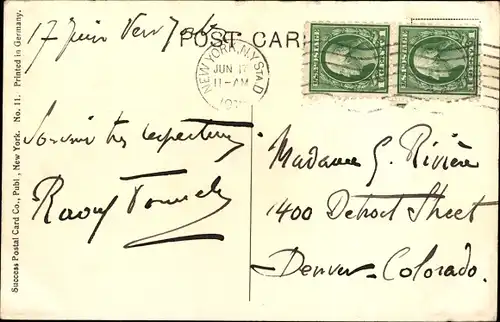 17 Juin New York
POST CARD
NEW YORK, N.Y. STA. D
JUN 17
11-AM
U.S. POSTAGE
U.S. POSTAGE
Souvenir très
Raoul
Madame G. Rivière
1400 Detroit Street
Denver-Colorado.
Success Postal Card Co., Publ., New York. No. 11. Printed in Germany.